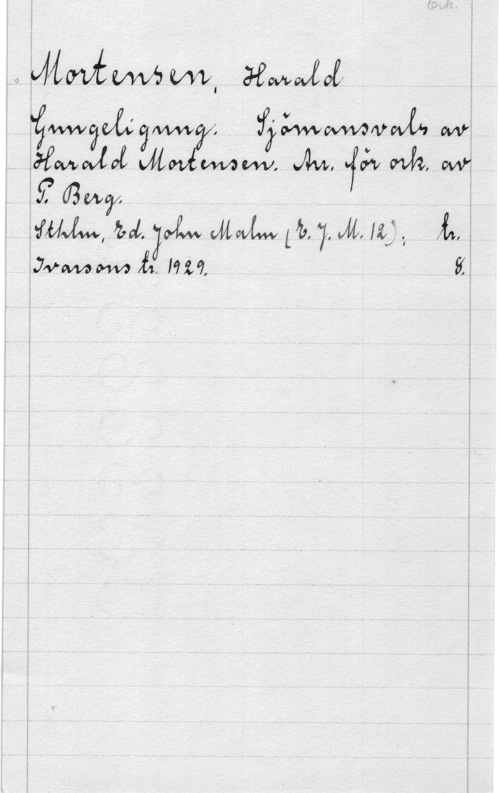 Ork.
Mortensen, Harald
Gungeligung. Sjömansvals av
Harald Mortensen. Arr. för ork. av
P. Berg.
Sthlm, Ed. John Malm (E. J. M. 12); tr.
Ivarsons tr. 1929. 8.